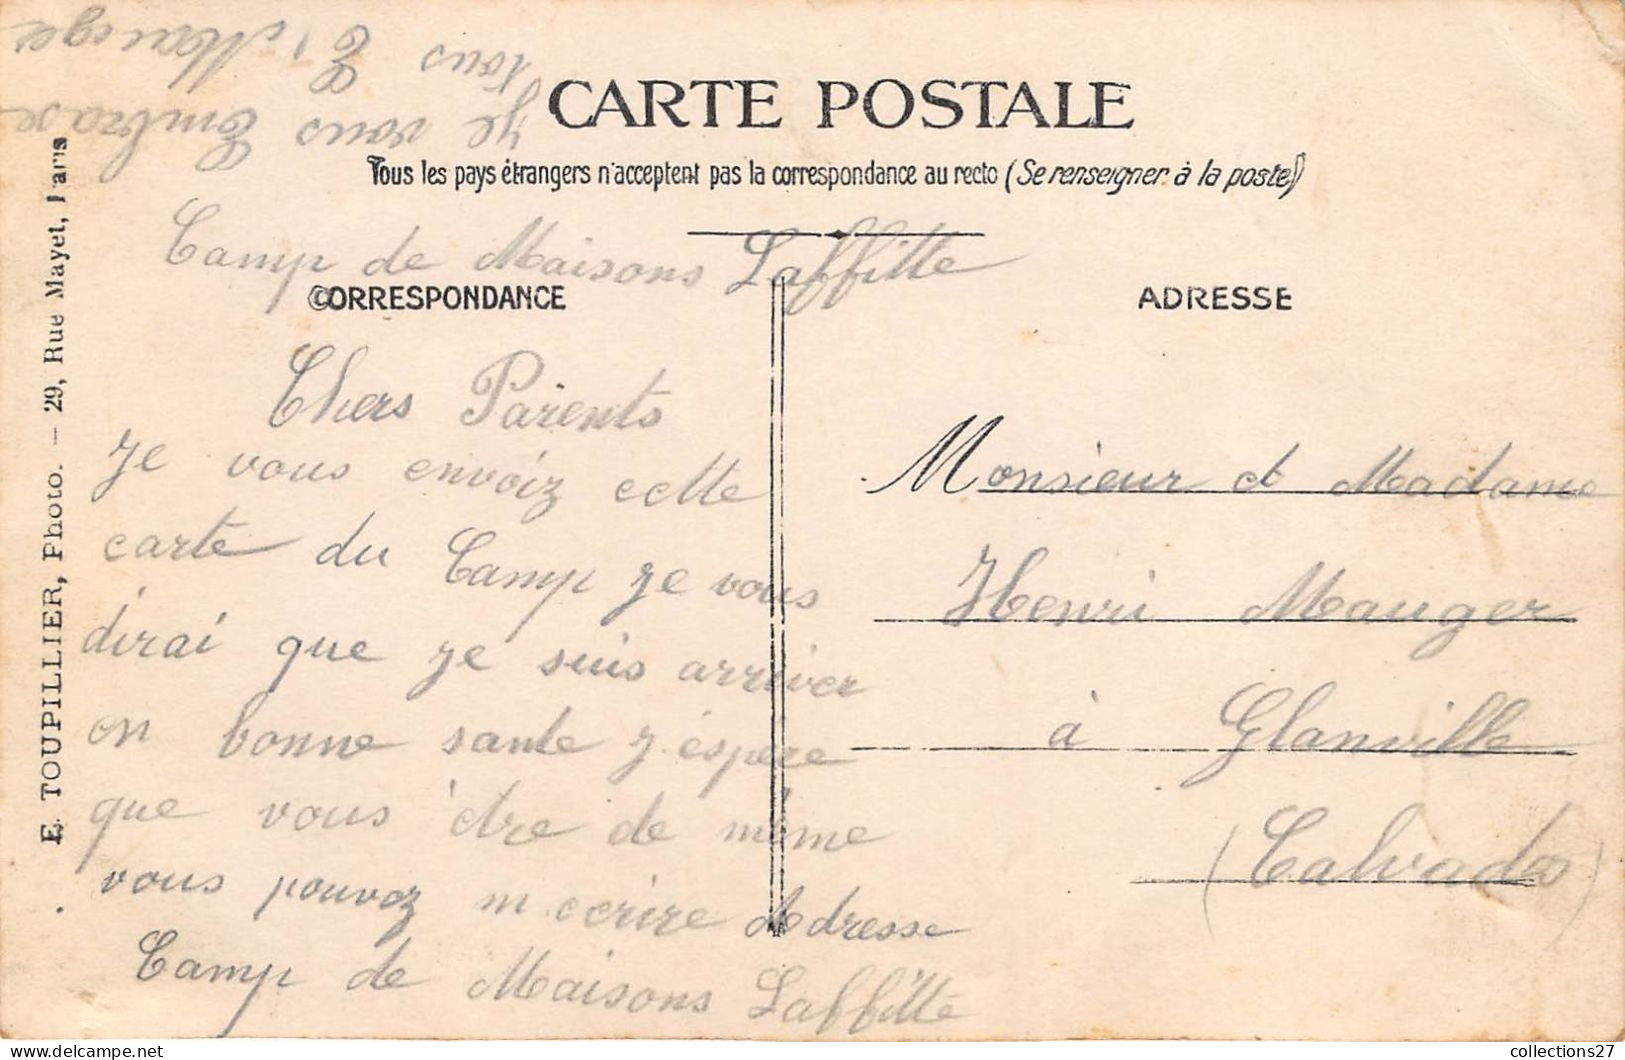 CARTE POSTALE
Tous les pays étrangers n'acceptent pas la correspondance au recto (Se renseigner à la poste)
Camp de Maisons Laffitte
CORRESPONDANCE
Chers Parents
Je vous envoiz cette
carte du Camp je vous
dirai que je suis arriver
en bonne sante j'éspere
que vous être de même
vous pouvez m ecrire Adresse
Camp de Maisons Laffitte
Je vous Embrase
tous E. Mauger
ADRESSE
Monsieur et Madame
Henri Mauger
à Glanville
(Calvados)
E. TOUPILLIER, Photo. — 29, Rue Mayet, Paris
collections27